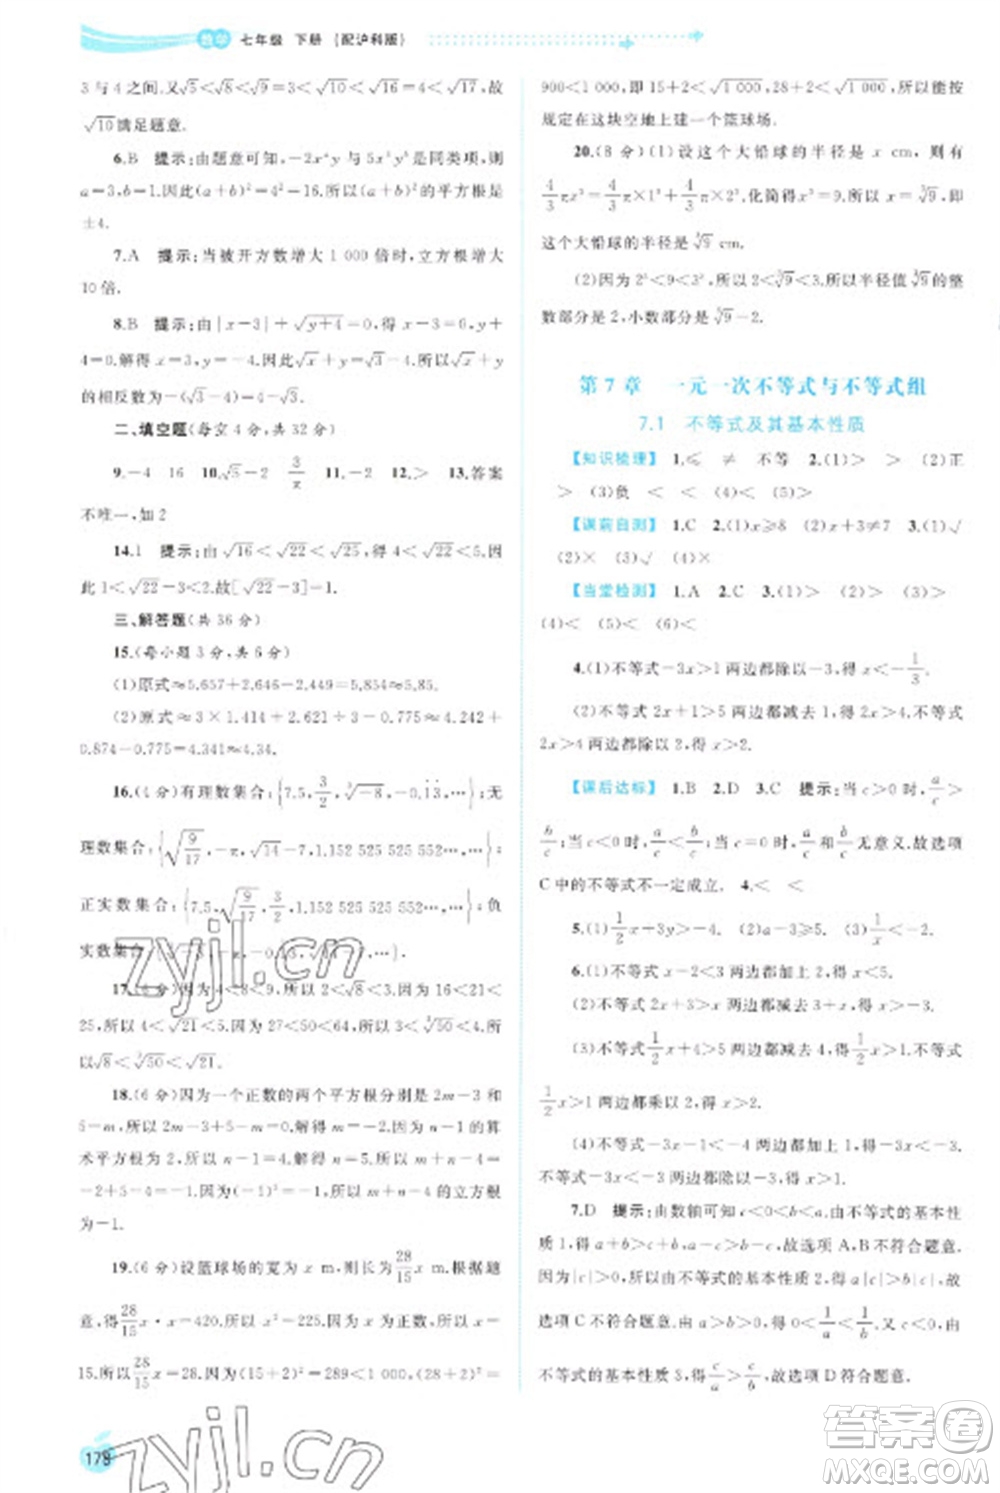 数学 七年级 下册 (配沪科版)
3 与 4 之间.又√5<√8<√9=3<√10<√16=4<√17,故
√10满足题意.
6.B 提示:由题意可知,-2xᵃy 与 5x³yᵇ是同类项,则
a=3,b=1.因此(a+b)²=16.所以(a+b)²的平方根是
±4.
7.A 提示:当被开方数增大 1 000 倍时,立方根增大
10 倍.
8.B 提示:由|x-3|+√(y+4)=0,得 x-3=0,y+
4=0.所以 x=3,y=-4.因此√x+y=√3-4.所以√x+y
的相反数为-(√3-4)=4-√3.
二、填空题(每空 4 分,共 32 分)
9.-4 16 10.√5-2 3/π 11.2 12.> 13.答案
不唯一,如 2
14.1 提示:由√16<√22<√25,得 4<√22<5.因
此 1<√22-3<2.故[√22-3]=1.
三、解答题(共 36 分)
15.(每小题 3 分,共 6 分)
(1)原式≈5.657+2.646-2.449=5.854≈5.85.
(2)原式≈3×1.414+2.621÷3-0.775≈4.242+
0.874-0.775=4.341≈4.34.
16.(4 分)有理数集合:{7.5,3/2,∛-8,-0.1̇3̇,…};无
理数集合:{√(9/17),-π,√14-7,1.152 525 525 552…,…};
正实数集合:{7.5,3/2,√(9/17),1.152 525 525 552…,…};负
实数集合:{∛-8,-π,-0.1̇3̇,√14-7,…}.
17.(6分)因为 4<8<9,所以 2<√8<3.因为 16<21<
25,所以 4<√21<5.因为 27<50<64,所以 3<∛50<4.所
以√8<∛50<√21.
18.(6 分)因为一个正数的两个平方根分别是 2m-3 和
5-m,所以 2m-3+5-m=0.所以 m=-2.因为 n-1 的算
术平方根为 2,所以 n-1=4.解得 n=5.因为 3+m+n-7=
-2+5-7+3=-1,所以 3+m+n-7 的立方根
为-1.
19.(6 分)设篮球场的宽为 x m,则长为28/15x m.根据题
意,得28/15x·x=420.所以 x²=225.因为 x>0,所以 x=
15.所以28/15x=28.因为(15+2)²=289<1 000,(28+2)²=
900<1 000,所以 15+2<√1 000,28+2<√1 000.所以能按
规定在这块空地上建一个篮球场.
20.(8 分)(1)设这个大铅球的半径是 x cm,则有
4/3πx³=4/3π×1³+4/3π×2³,化简得 x³=9.解得 x=∛9.所以
这个大铅球的半径是∛9 cm.
(2)因为 2³<9<3³,所以 2<∛9<3.所以半径值∛9的整
数部分是 2,小数部分是∛9-2.
第 7 章 一元一次不等式与不等式组
7.1 不等式及其基本性质
【知识梳理】 1.≤ ≠ 不等 2.(1)> > (2)正
> > (3)负 < < (4)< (5)>
【课前自测】 1.C 2.(1)x≥8 (2)x+3≠7 3.(1)√
(2)× (3)√ (4)×
【当堂检测】 1.A 2.C 3.(1)> (2)> (3)>
(4)< (5)< (6)>
4.(1)不等式-3x>1 两边都除以-3,得 x<-1/3.
(2)不等式 2x+1>5 两边都减去 1,得 2x>4.不等式
2x>4 两边都除以 2,得 x>2.
【课后达标】 1.B 2.D 3.C 提示:当 c>0 时,a/c>
b/c;当 c<0 时,a/c<b/c;当 c=0 时,a/c和b/c无意义.故选项
C 中的不等式不一定成立. 4.< <
5.(1)1/2x+3y>7. (2)a-3≥5. (3)1/x<-2.
6.(1)不等式 x-2<3 两边都加上 2,得 x<5.
(2)不等式 4x>3x-3 两边都减去 3x,得 x>-3.
(3)不等式1/2x+2>3 两边都减去 2,得1/2x>1.不等式
1/2x>1 两边都乘以 2,得 x>2.
(4)不等式-3x-1>2x-6 两边都加上 1-2x,得-5x>-5.
不等式-5x>-5 两边都除以-5,得 x<1.
7.D 提示:由数轴可知 c<0<b<a.由不等式的基本性
质 1,得 a+c>b+c,a-c>b-c,故选项 A,B 不符合题意.
因为|c|>0,所以由不等式的基本性质 2,得 a|c|>b|c|,故
选项 C 不符合题意.由 a>b>0,得 0<1/a<1/b.又因为 c<
0,所以由不等式的基本性质 3,得c/a>c/b,故选项 D 符合题意.
178
zyjl.cn
zyjl.cn
答案圈
MXQE.COM